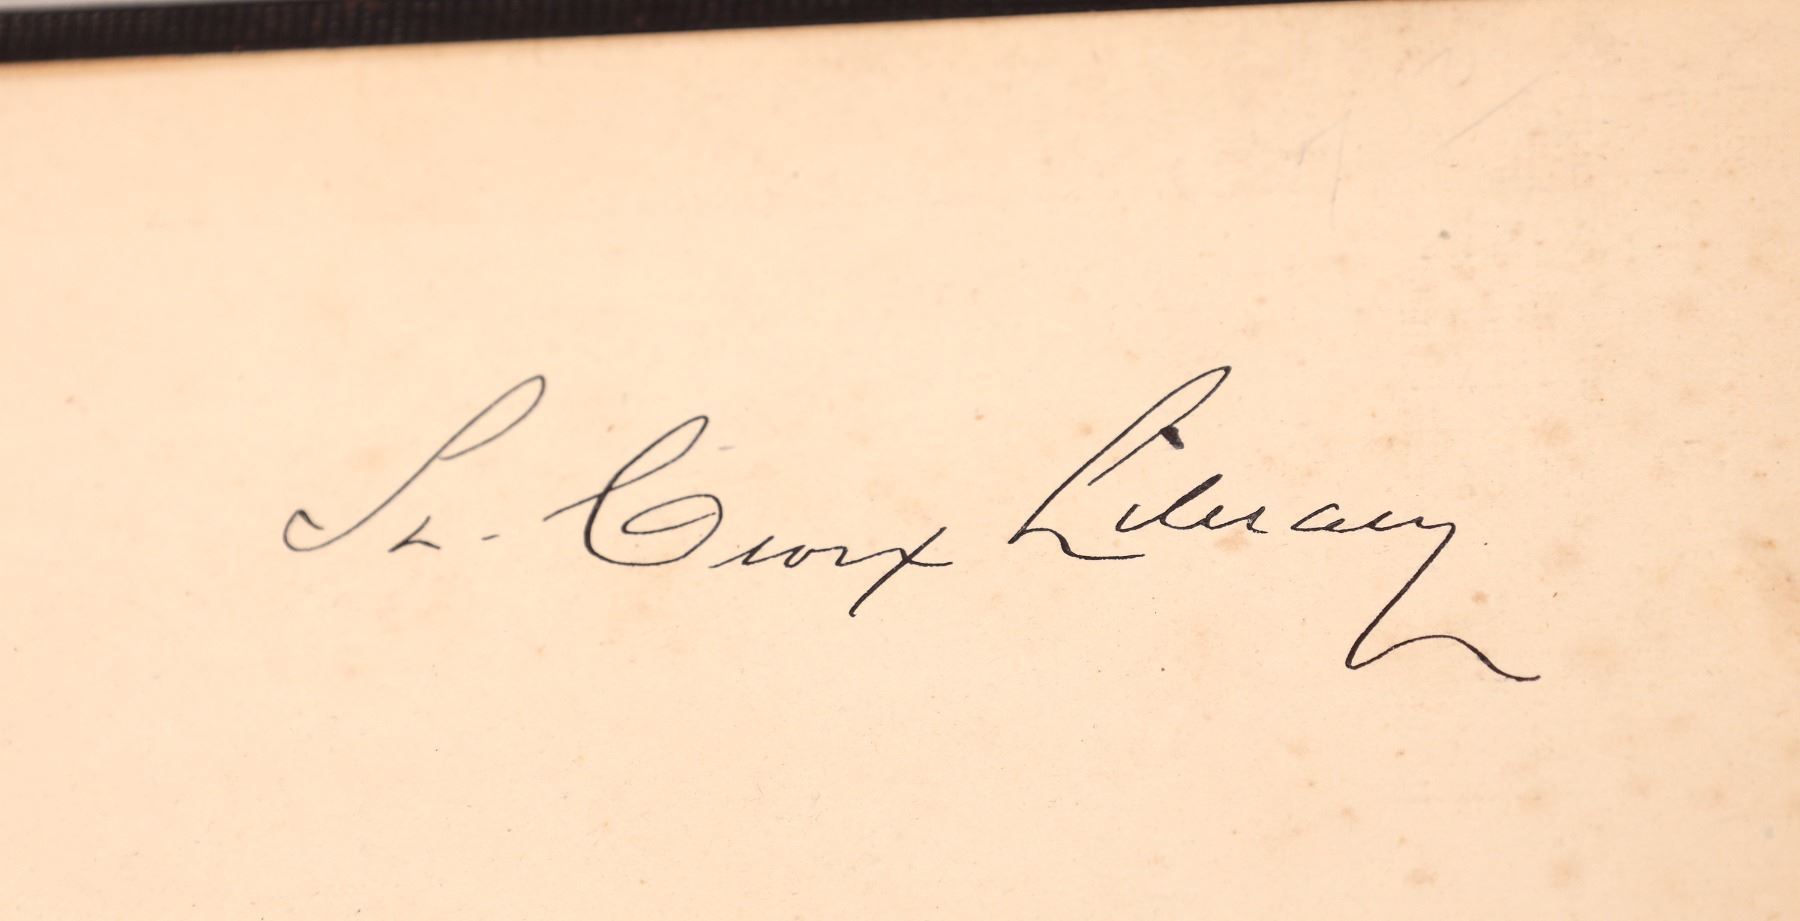 St. Croix Library